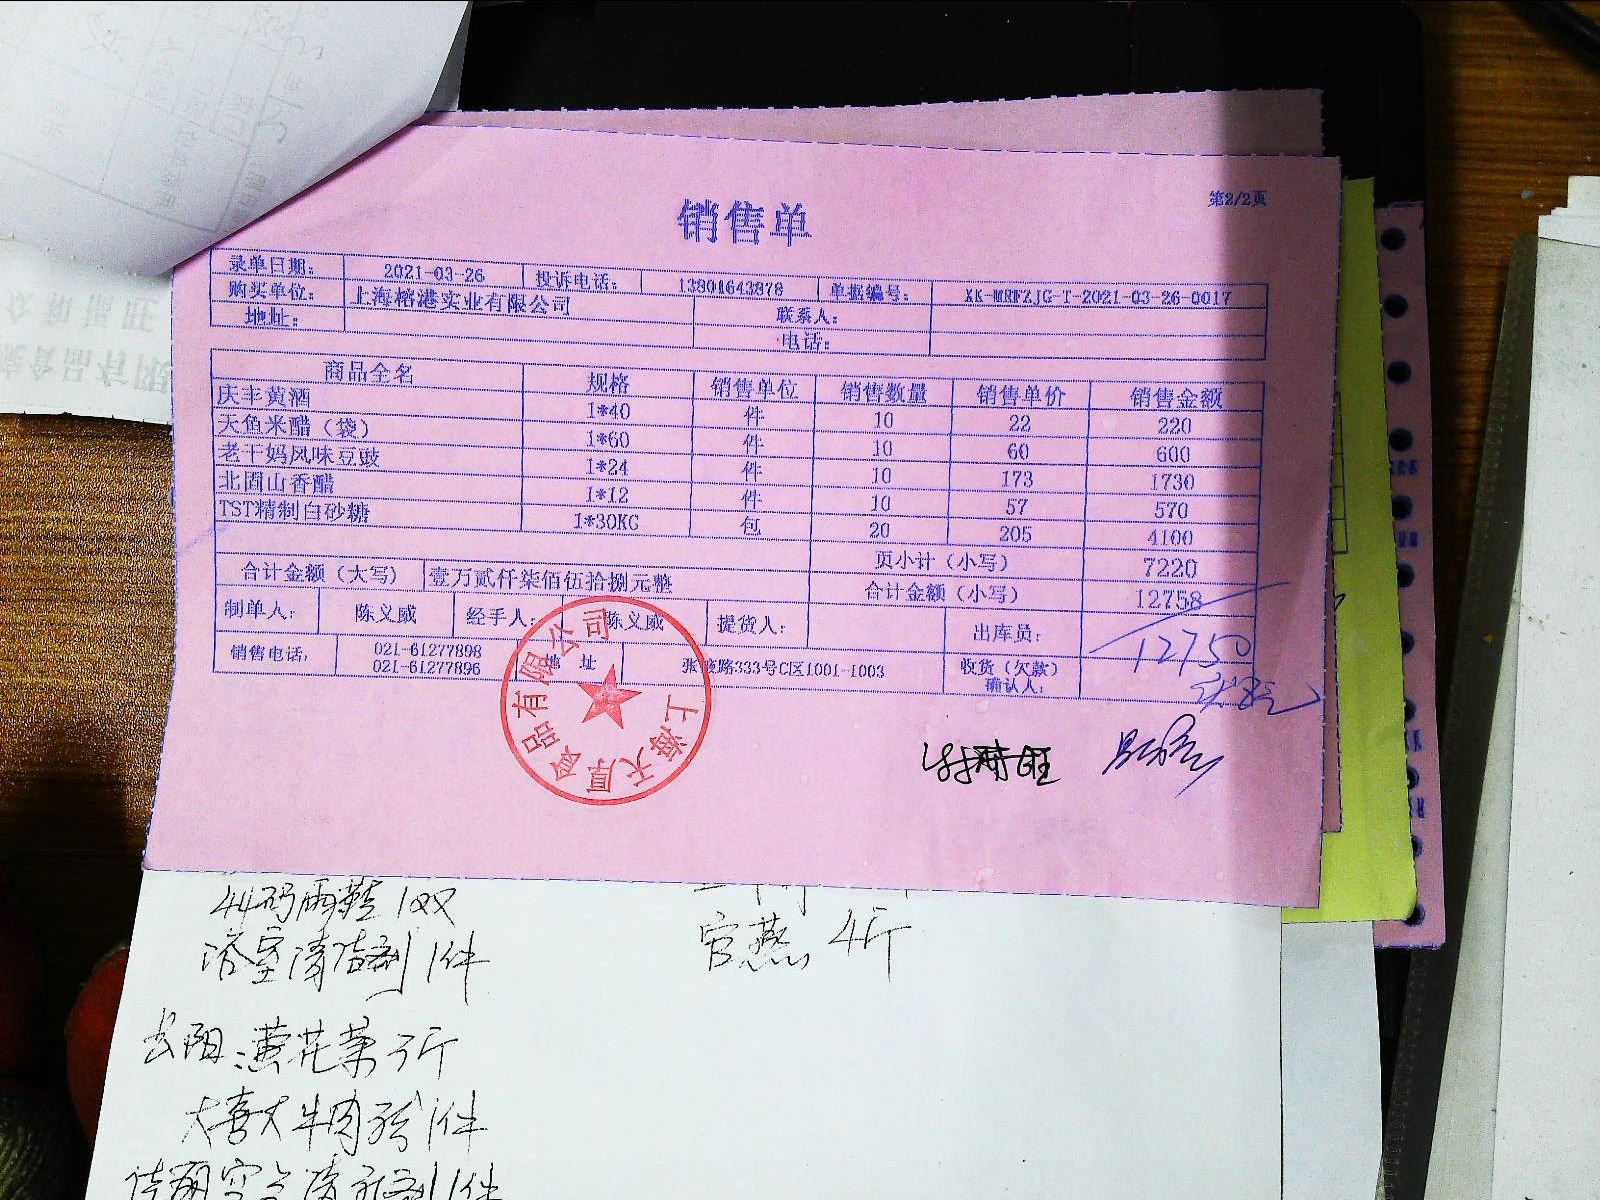 第2/2页
销售单
录单日期： 2021-03-26 投诉电话： 13801643878 单据编号： XK-MRFZJG-T-2021-03-26-0017
购买单位： 上海榕港实业有限公司 联系人：
地址： 电话：
商品全名 规格 销售单位 销售数量 销售单价 销售金额
庆丰黄酒 1*40 件 10 22 220
天鱼米醋（袋） 1*60 件 10 60 600
老干妈风味豆豉 1*24 件 10 173 1730
北固山香醋 1*12 件 10 57 570
TST精制白砂糖 1*30KG 包 20 205 4100
页小计（小写） 7220
合计金额（大写） 壹万贰仟柒佰伍拾捌元整 合计金额（小写） 12758
制单人： 陈义威 经手人： 陈义威 提货人： 出库员：
12750
销售电话： 021-61277898 021-61277896 地 址 张 路333号C区1001-1003 收货（欠款）确认人：
上海天厚食品有限公司
44码雨鞋1双
浴室清洁剂1件
官燕 4斤
黄花菜3斤
大喜大牛肉 1件
空气清新剂1件